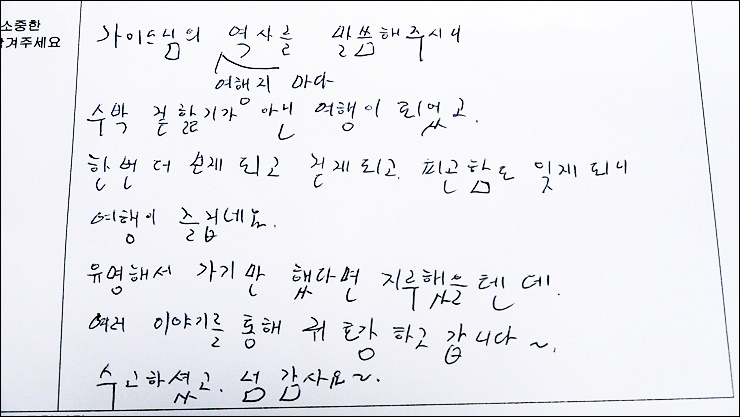 소중한
남겨주세요
가이드님의 역사를 말씀해주시니
여행지 마다
수박 겉핥기가 아닌 여행이 되었고.
한번 더 쉬게 되고 걷게되고. 피곤함도 잊게 되니
여행이 즐겁네요.
유명해서 가기만 했다면 지루했을 텐데.
여러 이야기를 통해 귀 호강 하고 갑니다~.
수고하셨고. 넘 감사요~.